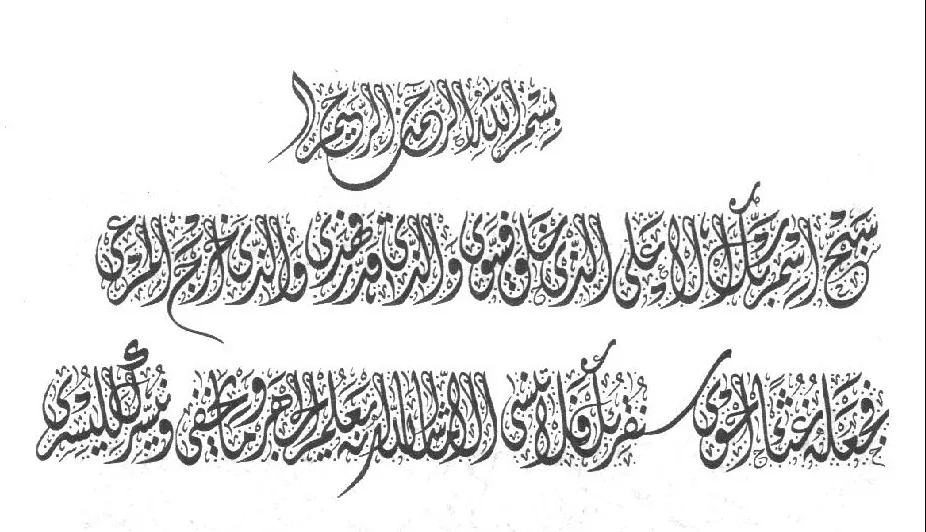 بسم الله الرحمن الرحيم
سبح اسم ربك الأعلى الذي خلق فسوى والذي قدر فهدى والذي أخرج المرعى
فجعله غثاء أحوى سنقرئك فلا تنسى إلا ما شاء الله إنه يعلم الجهر وما يخفى ونيسرك لليسرى